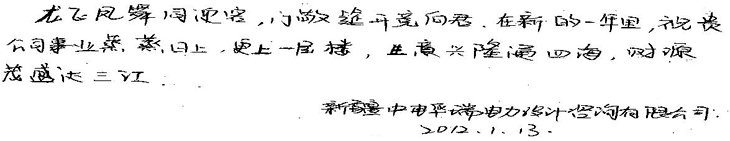 龙飞凤舞同迎客,门敞筵开笑向君。在新的一年里,祝贵
公司事业蒸蒸日上,更上一层楼,生意兴隆通四海,财源
茂盛达三江.
新疆中电华瑞电力设计咨询有限公司.
2012.1.13.